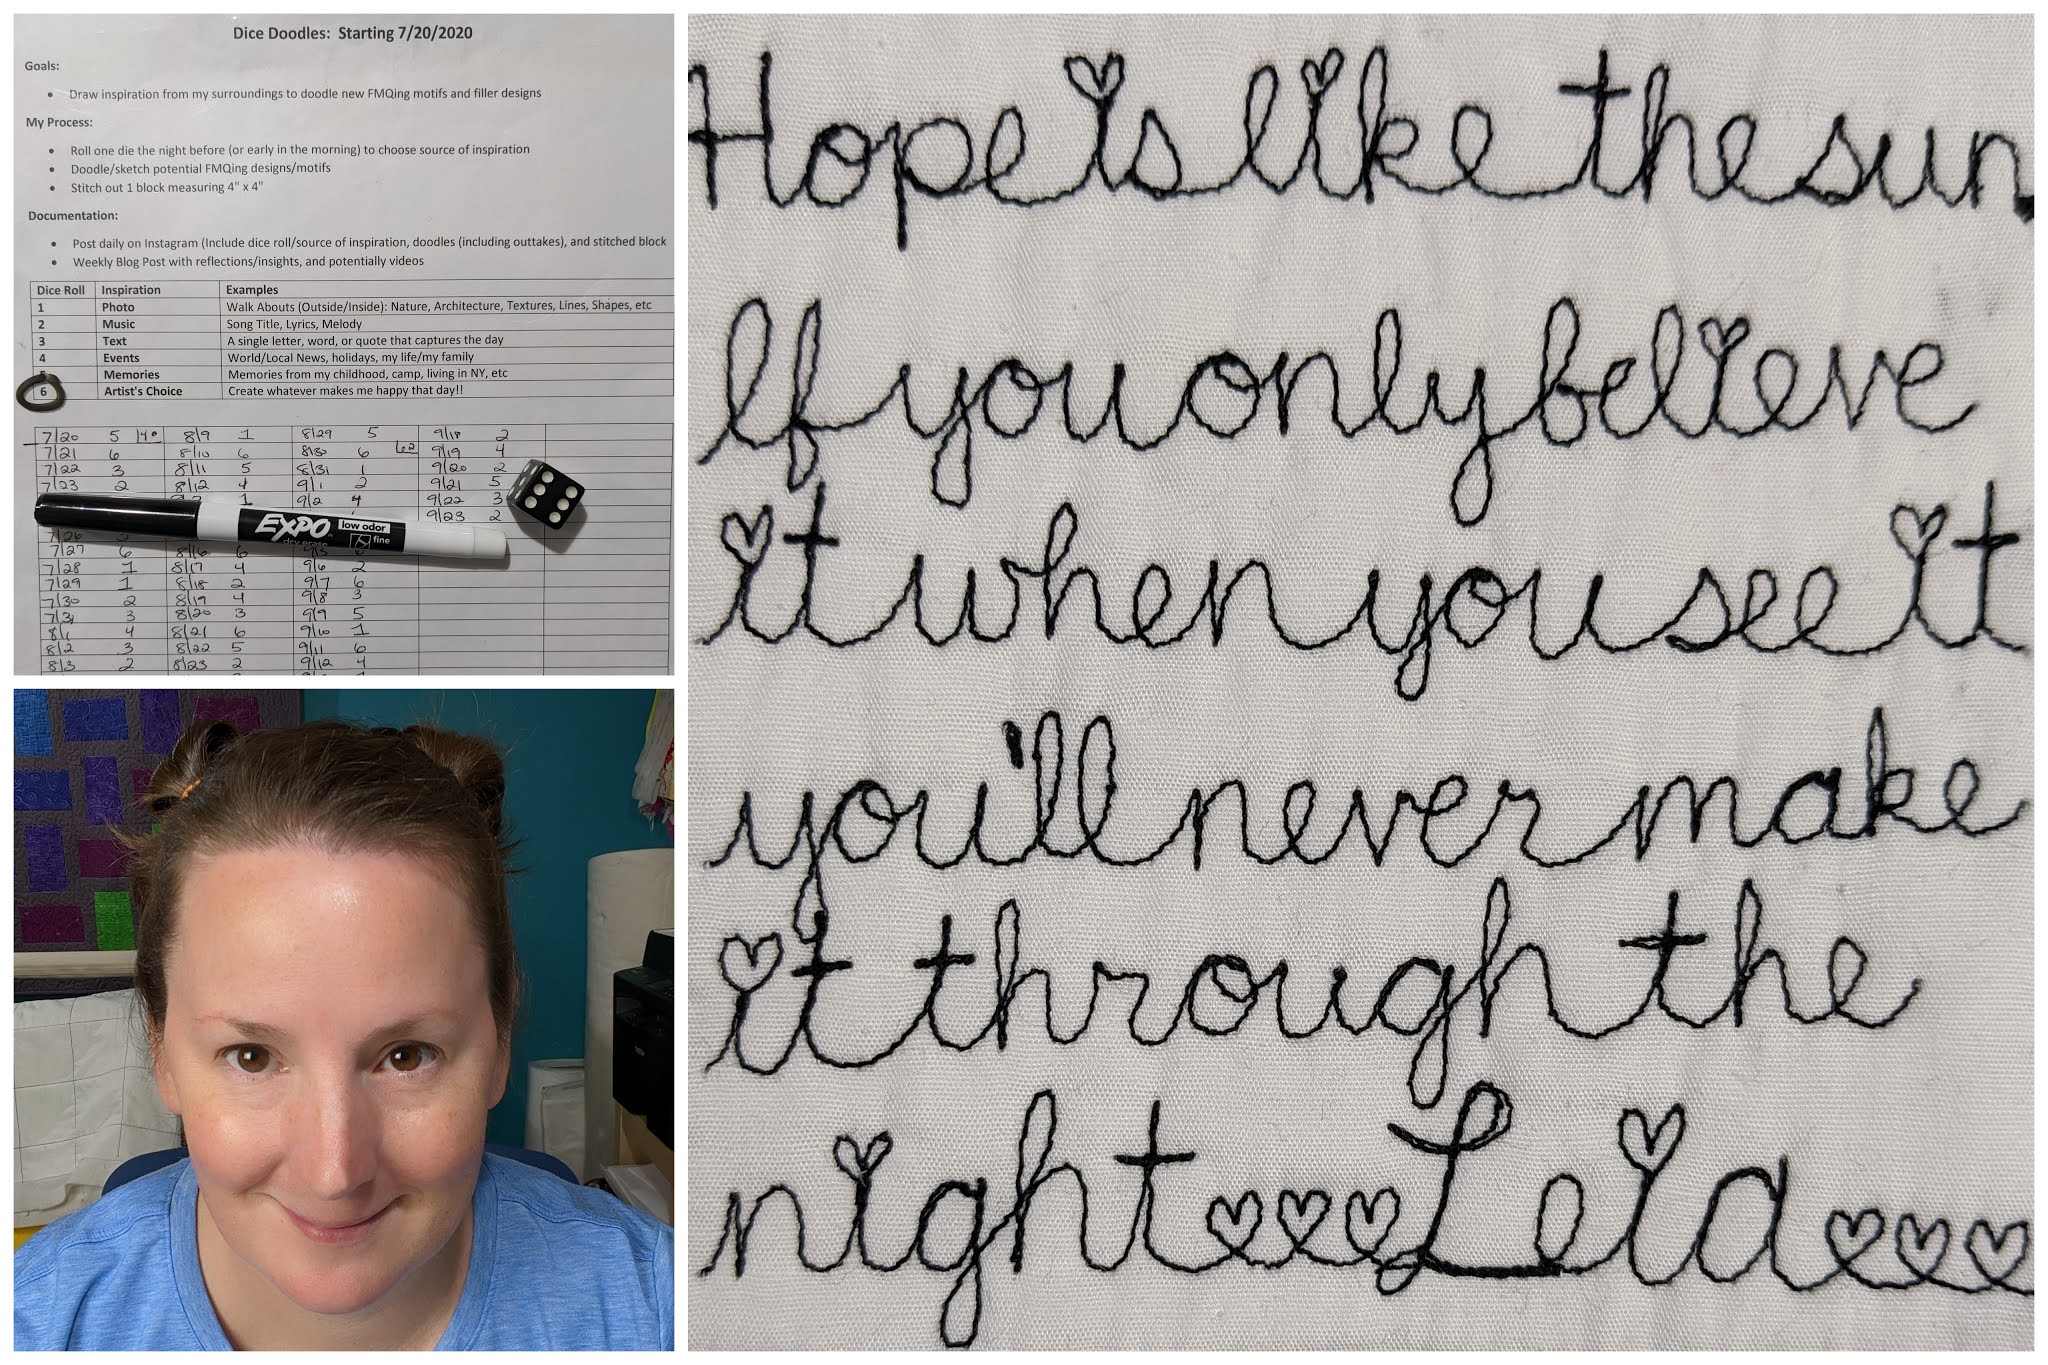 Dice Doodles: Starting 7/20/2020
Goals:
• Draw inspiration from my surroundings to doodle new FMQing motifs and filler designs
My Process:
• Roll one die the night before (or early in the morning) to choose source of inspiration
• Doodle/sketch potential FMQing designs/motifs
• Stitch out 1 block measuring 4" x 4"
Documentation:
• Post daily on Instagram (Include dice roll/source of inspiration, doodles (including outtakes), and stitched block
• Weekly Blog Post with reflections/insights, and potentially videos
Dice Roll Inspiration Examples
1 Photo Walk Abouts (Outside/Inside): Nature, Architecture, Textures, Lines, Shapes, etc
2 Music Song Title, Lyrics, Melody
3 Text A single letter, word, or quote that captures the day
4 Events World/Local News, holidays, my life/my family
Memories Memories from my childhood, camp, living in NY, etc
6 Artist's Choice Create whatever makes me happy that day!!
7/20 5 8/9 1 8/29 5 9/18 2
7/21 6 8/10 6 8/30 6 9/19 4
7/22 3 8/11 5 8/31 1 9/20 2
7/23 2 8/12 4 9/1 2 9/21 5
1 9/2 4 9/22 3
9/23 2
EXPO low odor
dry erase fine
7/26
7/27 6 8/16 6 9/5
7/28 1 8/17 4 9/6 2
7/29 1 8/18 2 9/7 6
7/30 2 8/19 4 9/8 3
7/31 3 8/20 3 9/9 5
8/1 4 8/21 6 9/10 1
8/2 3 8/22 5 9/11 6
8/3 2 8/23 2 9/12 4
Hope is like the sun.
If you only believe
it when you see it
you'll never make
it through the
night Leia